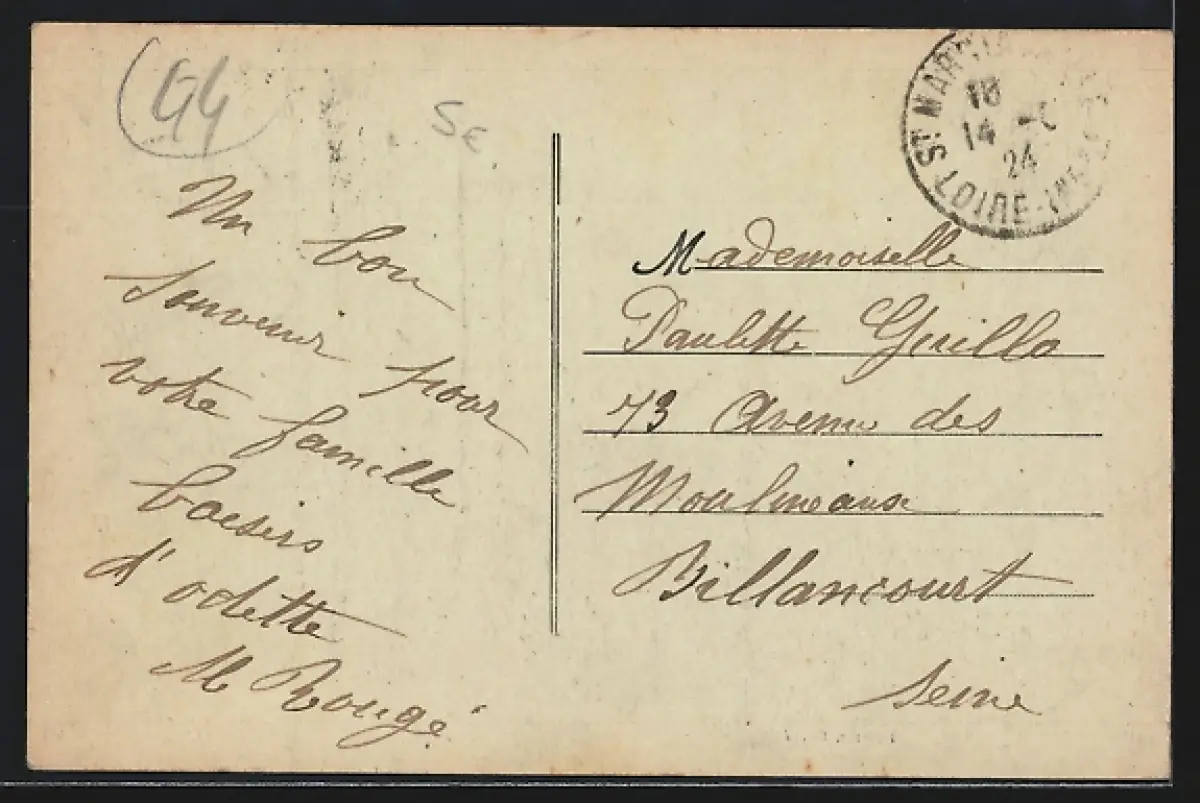 44
SE
Un bon
souvenir pour
votre famille
baisers
d'odette
M Rougé
ST MAR
18
14
24
LOIRE-INF
Mademoiselle
Paulette Guillo
73 Avenue des
Moulineaux
Billancourt
Seine